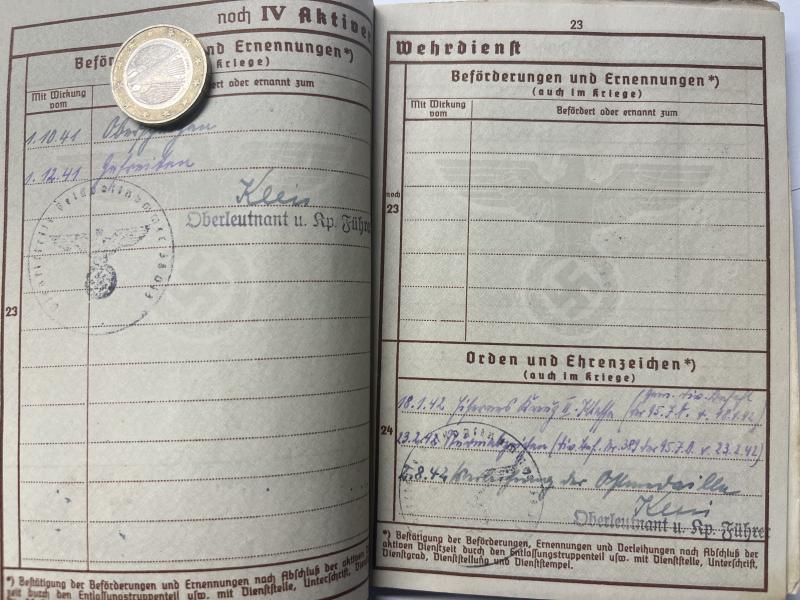 noch IV Aktiver
Beför und Ernennungen*)
Kriege)
Mit Wirkung
vom
oder ernannt zum
1.10.41 Oberschützen
1.12.41 Gefreiten
Klein
Oberleutnant u. Kp. Führer
Dienststelle Feldpostnummer
23
*) Bestätigung der Beförderungen und Ernennungen nach Abschluß der aktiven
zeit durch den Entlassungstruppenteil usw. mit Dienststelle, Unterschrift, Die
23
Wehrdienst
Beförderungen und Ernennungen*)
(auch im Kriege)
Mit Wirkung
vom
Befördert oder ernannt zum
noch
23
Orden und Ehrenzeichen*)
(auch im Kriege)
18.1.42 Eisernes Kreuz II. Klasse (der 95. J.D. v. 18.1.42)
24
23.2.42 Sturmabzeichen (Div. Bef. Nr. der 95. J.D. v. 23.2.42)
8.42 Verleihung der Ostmedaille
Klein
Oberleutnant u. Kp. Führer
*) Bestätigung der Beförderungen, Ernennungen und Verleihungen nach Abschluß der
aktiven Dienstzeit durch den Entlassungstruppenteil usw. mit Dienststelle, Unterschrift,
Dienstgrad, Dienststellung und Dienststempel.